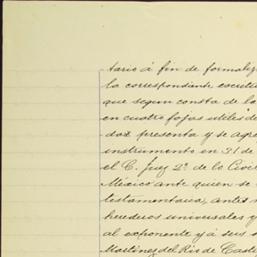 tario á fin de formaliz
la correspondiente escritu
que segun consta de la
en cuatro fojas utiles de
doz presenta y se agre
instrumento en 21 de
el C. Juez 2º de lo Civi
México ante quien se
testamentaria, antes
herederos universales y
al exponente y á sus
Martinez del Rio de Caste